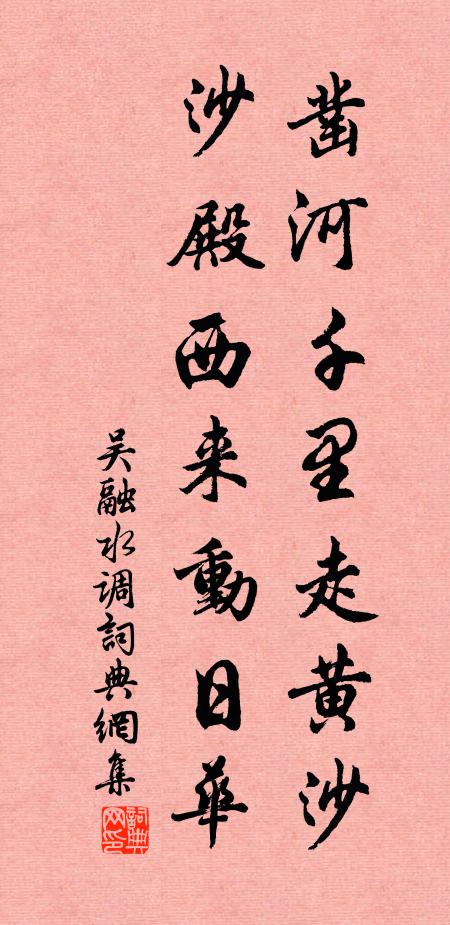 凿河千里走黄沙
沙殿西来動日华
吴融水调詞典網集
詞典网印